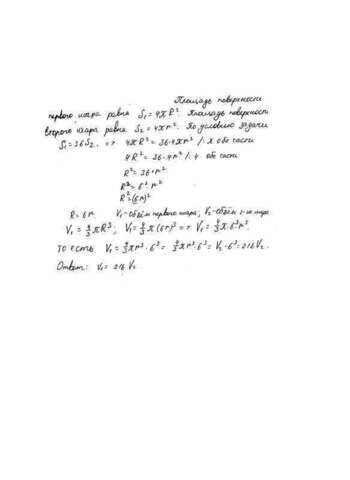 Площадь поверхности
первого шара равна S₁=4πR². Площадь поверхности
второго шара равна S₂=4πr². По условию задачи
S₁=36S₂. => 4πR²=36·4πr² /:π обе части
4R²=36·4r² /:4 обе части
R²=36·r²
R²=6²·r²
R²=(6r)²
R=6r. V₁-объём первого шара; V₂-объём 2-го шара
V₁=4/3πR³; V₁=4/3π(6r)³ => V₁=4/3π·6³r³
то есть V₁=4/3πr³·6³=4/3πr³·6³=V₂·6³=216V₂.
Ответ: V₁=216V₂